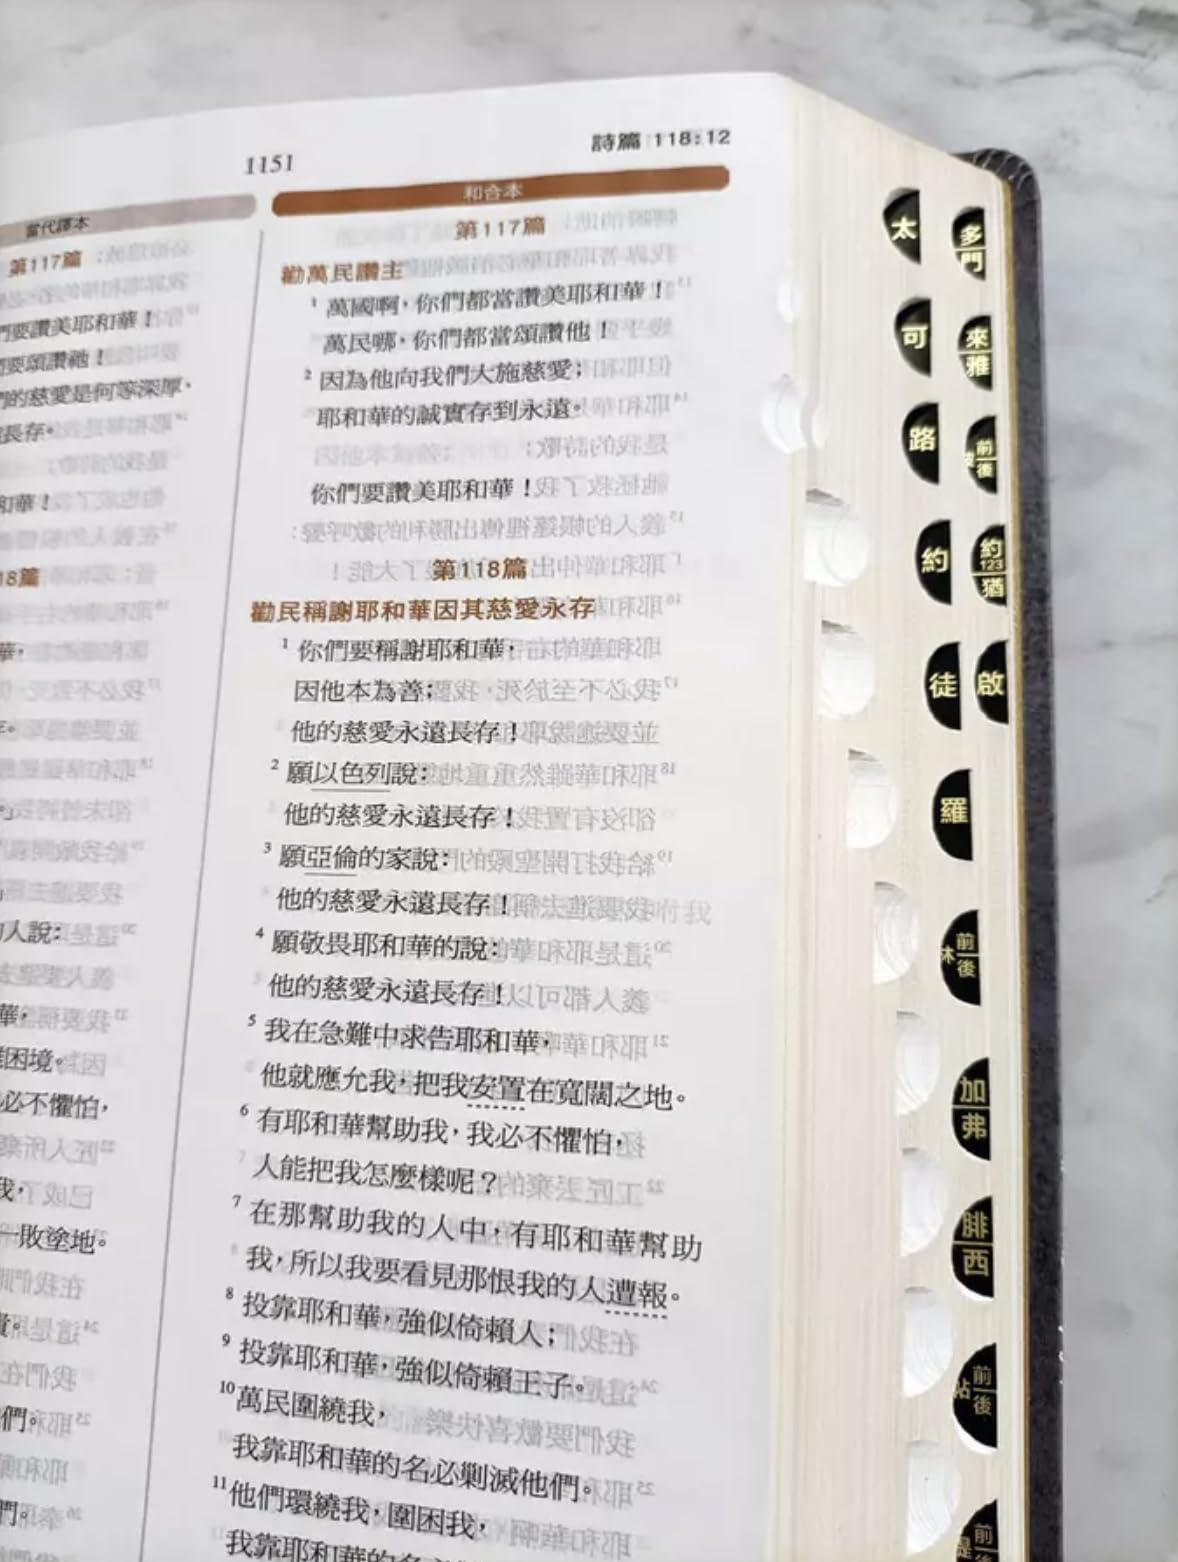 1151
詩篇 118:12
當代譯本
第117篇
們要讚美耶和華！
們要頌讚祂！
們的慈愛是何等深厚，
長存。
和華！
18篇
華，
人說：
華，
困境。
必不懼怕，
我，
一敗塗地。
們。
們。
和合本
第117篇
勸萬民讚主
1 萬國啊，你們都當讚美耶和華！
萬民哪，你們都當頌讚他！
2 因為他向我們大施慈愛；
耶和華的誠實存到永遠。
你們要讚美耶和華！
第118篇
勸民稱謝耶和華因其慈愛永存
1 你們要稱謝耶和華，
因他本為善；
他的慈愛永遠長存！
2 願以色列說：
他的慈愛永遠長存！
3 願亞倫的家說：
他的慈愛永遠長存！
4 願敬畏耶和華的說：
他的慈愛永遠長存！
5 我在急難中求告耶和華，
他就應允我，把我安置在寬闊之地。
6 有耶和華幫助我，我必不懼怕，
人能把我怎麼樣呢？
7 在那幫助我的人中，有耶和華幫助
我，所以我要看見那恨我的人遭報。
8 投靠耶和華，強似倚賴人；
9 投靠耶和華，強似倚賴王子。
10 萬民圍繞我，
我靠耶和華的名必剿滅他們。
11 他們環繞我，圍困我，
我靠耶和華的名
太
可
路
約
徒
羅
林
前
後
加
弗
腓
西
帖
前
後
前
多
門
來
雅
彼
前
後
約
123
猶
啟